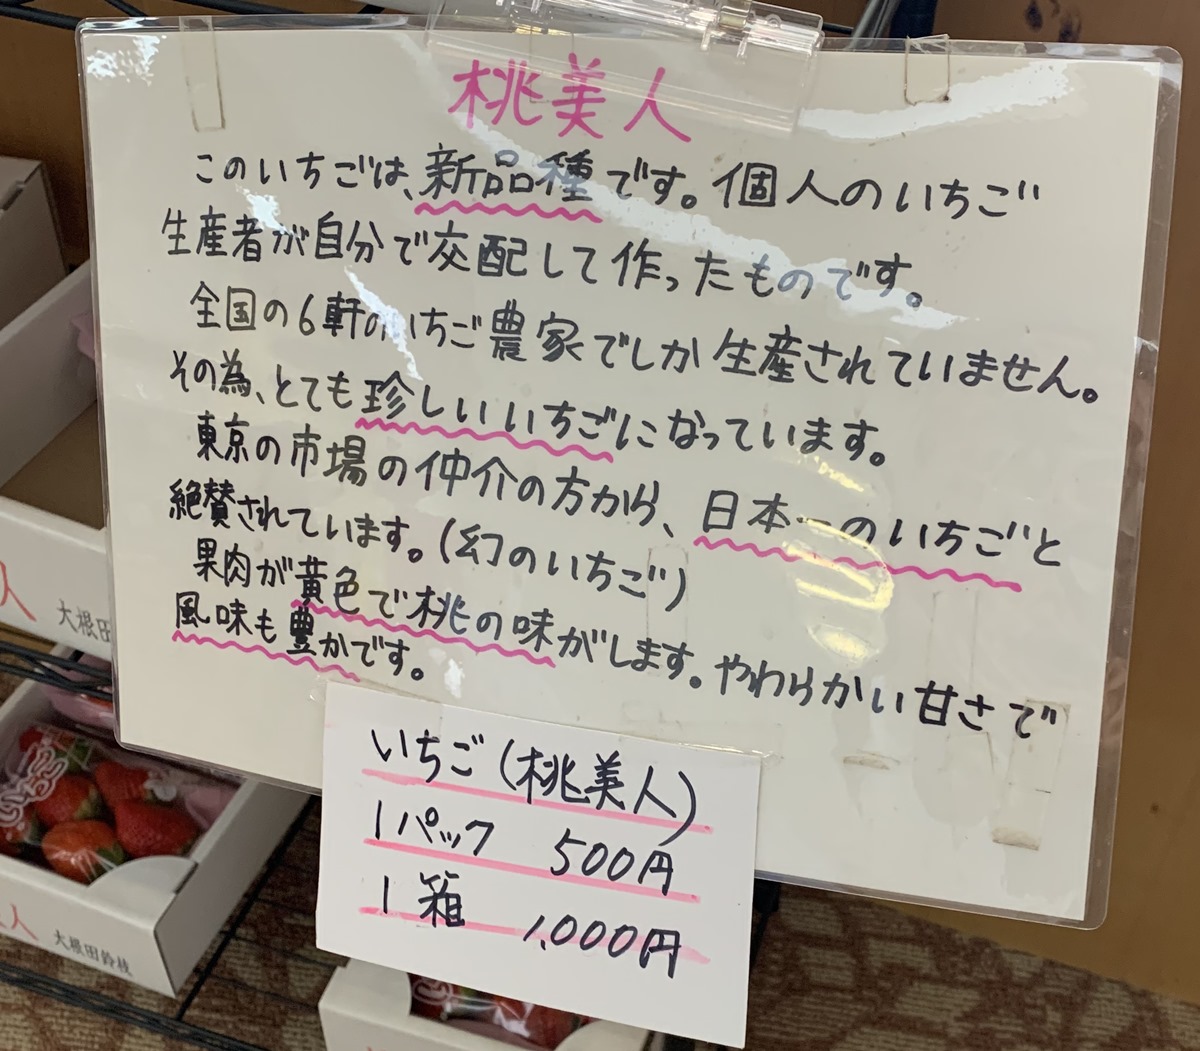 桃美人
このいちごは、新品種です。個人のいちご
生産者が自分で交配して作ったものです。
全国の6軒のいちご農家でしか生産されていません。
その為、とても珍しいいちごになっています。
東京の市場の仲介の方から、日本一のいちごと
絶賛されています。(幻のいちご)
果肉が黄色で桃の味がします。やわらかい甘さで
風味も豊かです。
いちご(桃美人)
1パック 500円
1箱 1,000円
人
大根田
いちご
人
大根田鈴枝